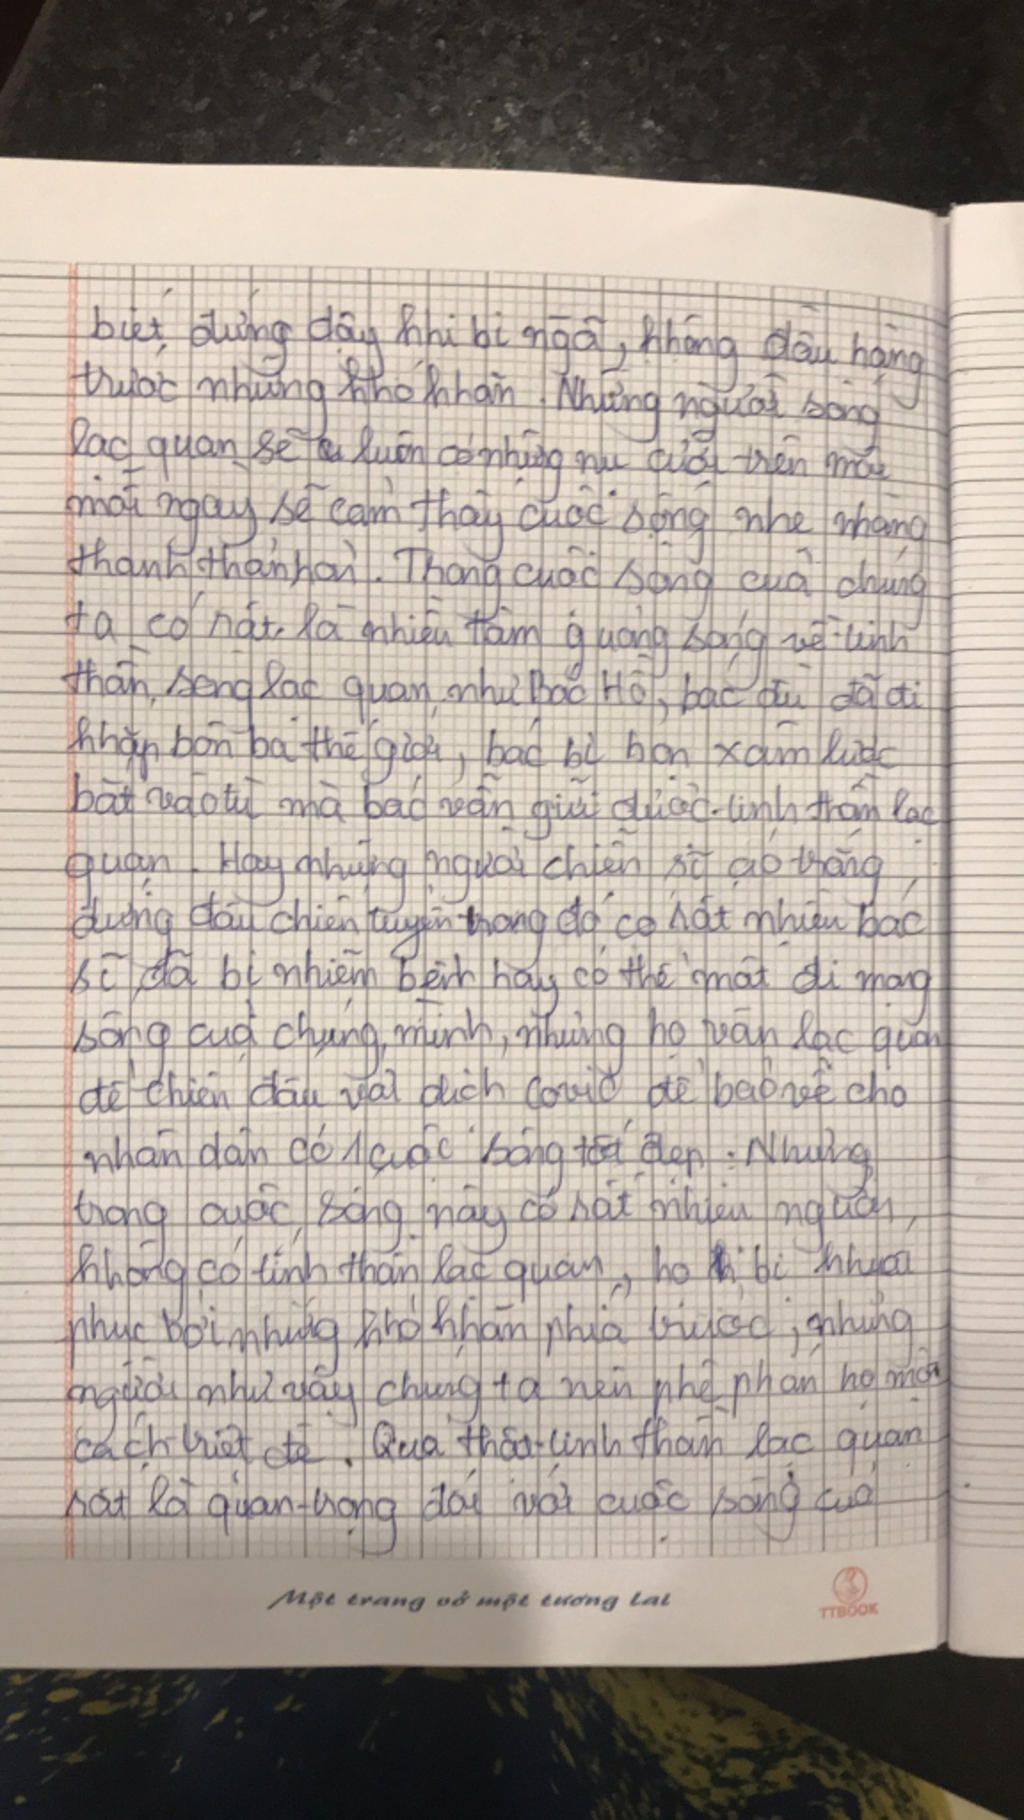 biết đứng dậy khi bị ngã, không đầu hàng
trước những khó khăn. Những người sống
lạc quan sẽ luôn có những nụ cười trên môi
mỗi ngày sẽ cảm thấy cuộc sống nhẹ nhàng
thanh thản hơn. Thong cuộc sống của chúng
ta có rất là nhiều tấm gương sáng về tinh
thần sống lạc quan như Bác Hồ, bác dù đã đi
khắp bôn ba thế giới, bác bị bọn xâm lược
bắt vào tù mà bác vẫn giữ được tinh thần lạc
quan. Hay những người chiến sĩ áo trắng
đứng đầu chiến tuyến trong đó có rất nhiều bác
sĩ đã bị nhiễm bệnh hay có thể mất đi mạng
sống của chúng mình, nhưng họ vẫn lạc quan
để chiến đấu với dịch Covid để bảo vệ cho
nhân dân có 1 cuộc sống tốt đẹp. Nhưng
trong cuộc sống này có rất nhiều người
không có tinh thần lạc quan, họ bị khuất
phục bởi những khó khăn phía trước, những
người như vậy chúng ta nên phê phán họ một
cách triệt để. Quả thật tinh thần lạc quan
rất là quan trọng đối với cuộc sống của
Một trang vở một tương lai
TTBOOK